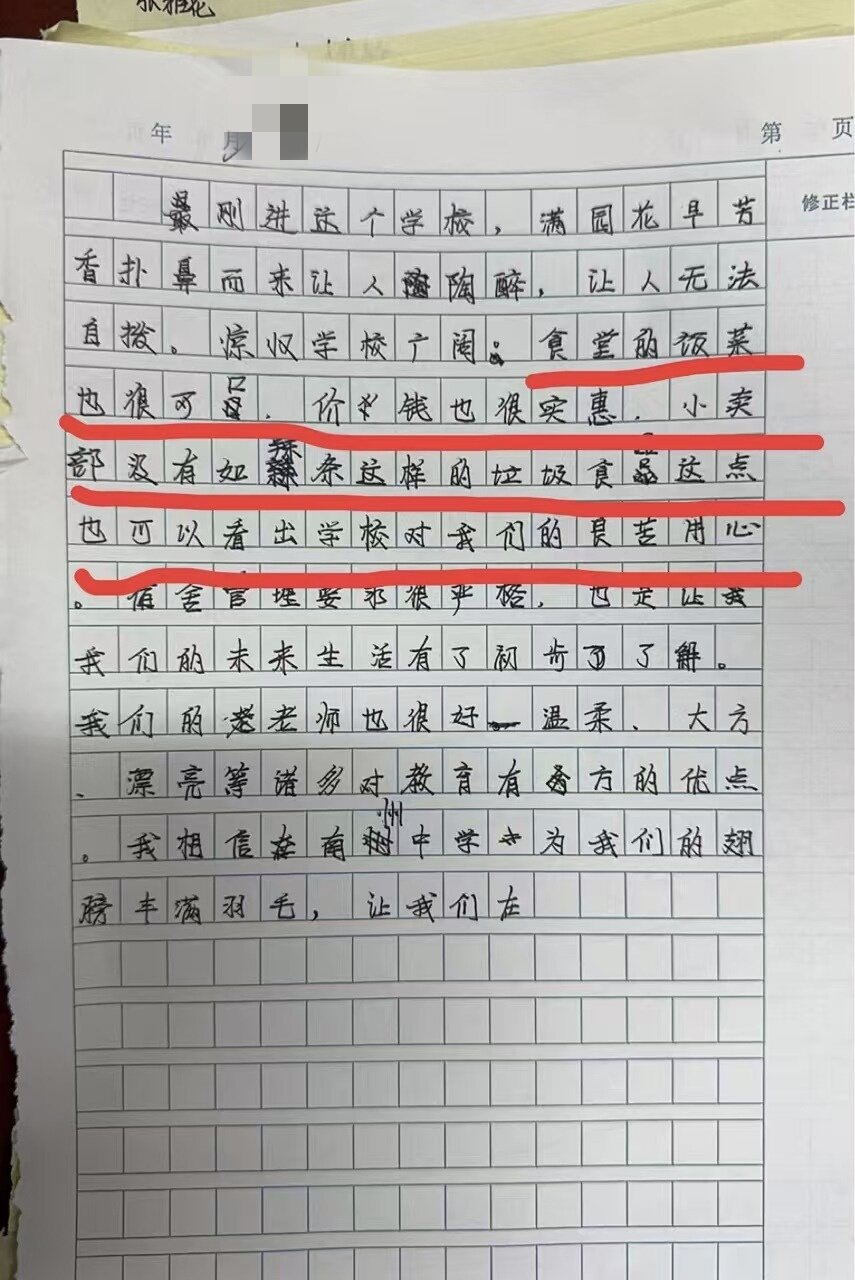 年 月
第 页
修正栏
最刚进这个学校，满园花早芳
香扑鼻而来让人陶醉，让人无法
自拨。惊叹学校广阔。食堂的饭菜
也很可口，价钱也很实惠．小卖
部没有如辣条这样的垃圾食品这点
也可以看出学校对我们的良苦用心
。宿舍管理要求很严格，也是让我
我们的未来生活有了初步了了解。
我们的老老师也很好 温柔、大方
、漂亮等诸多对教育有多方的优点
。我相信在南州中学 为我们的翅
膀丰满羽毛，让我们在